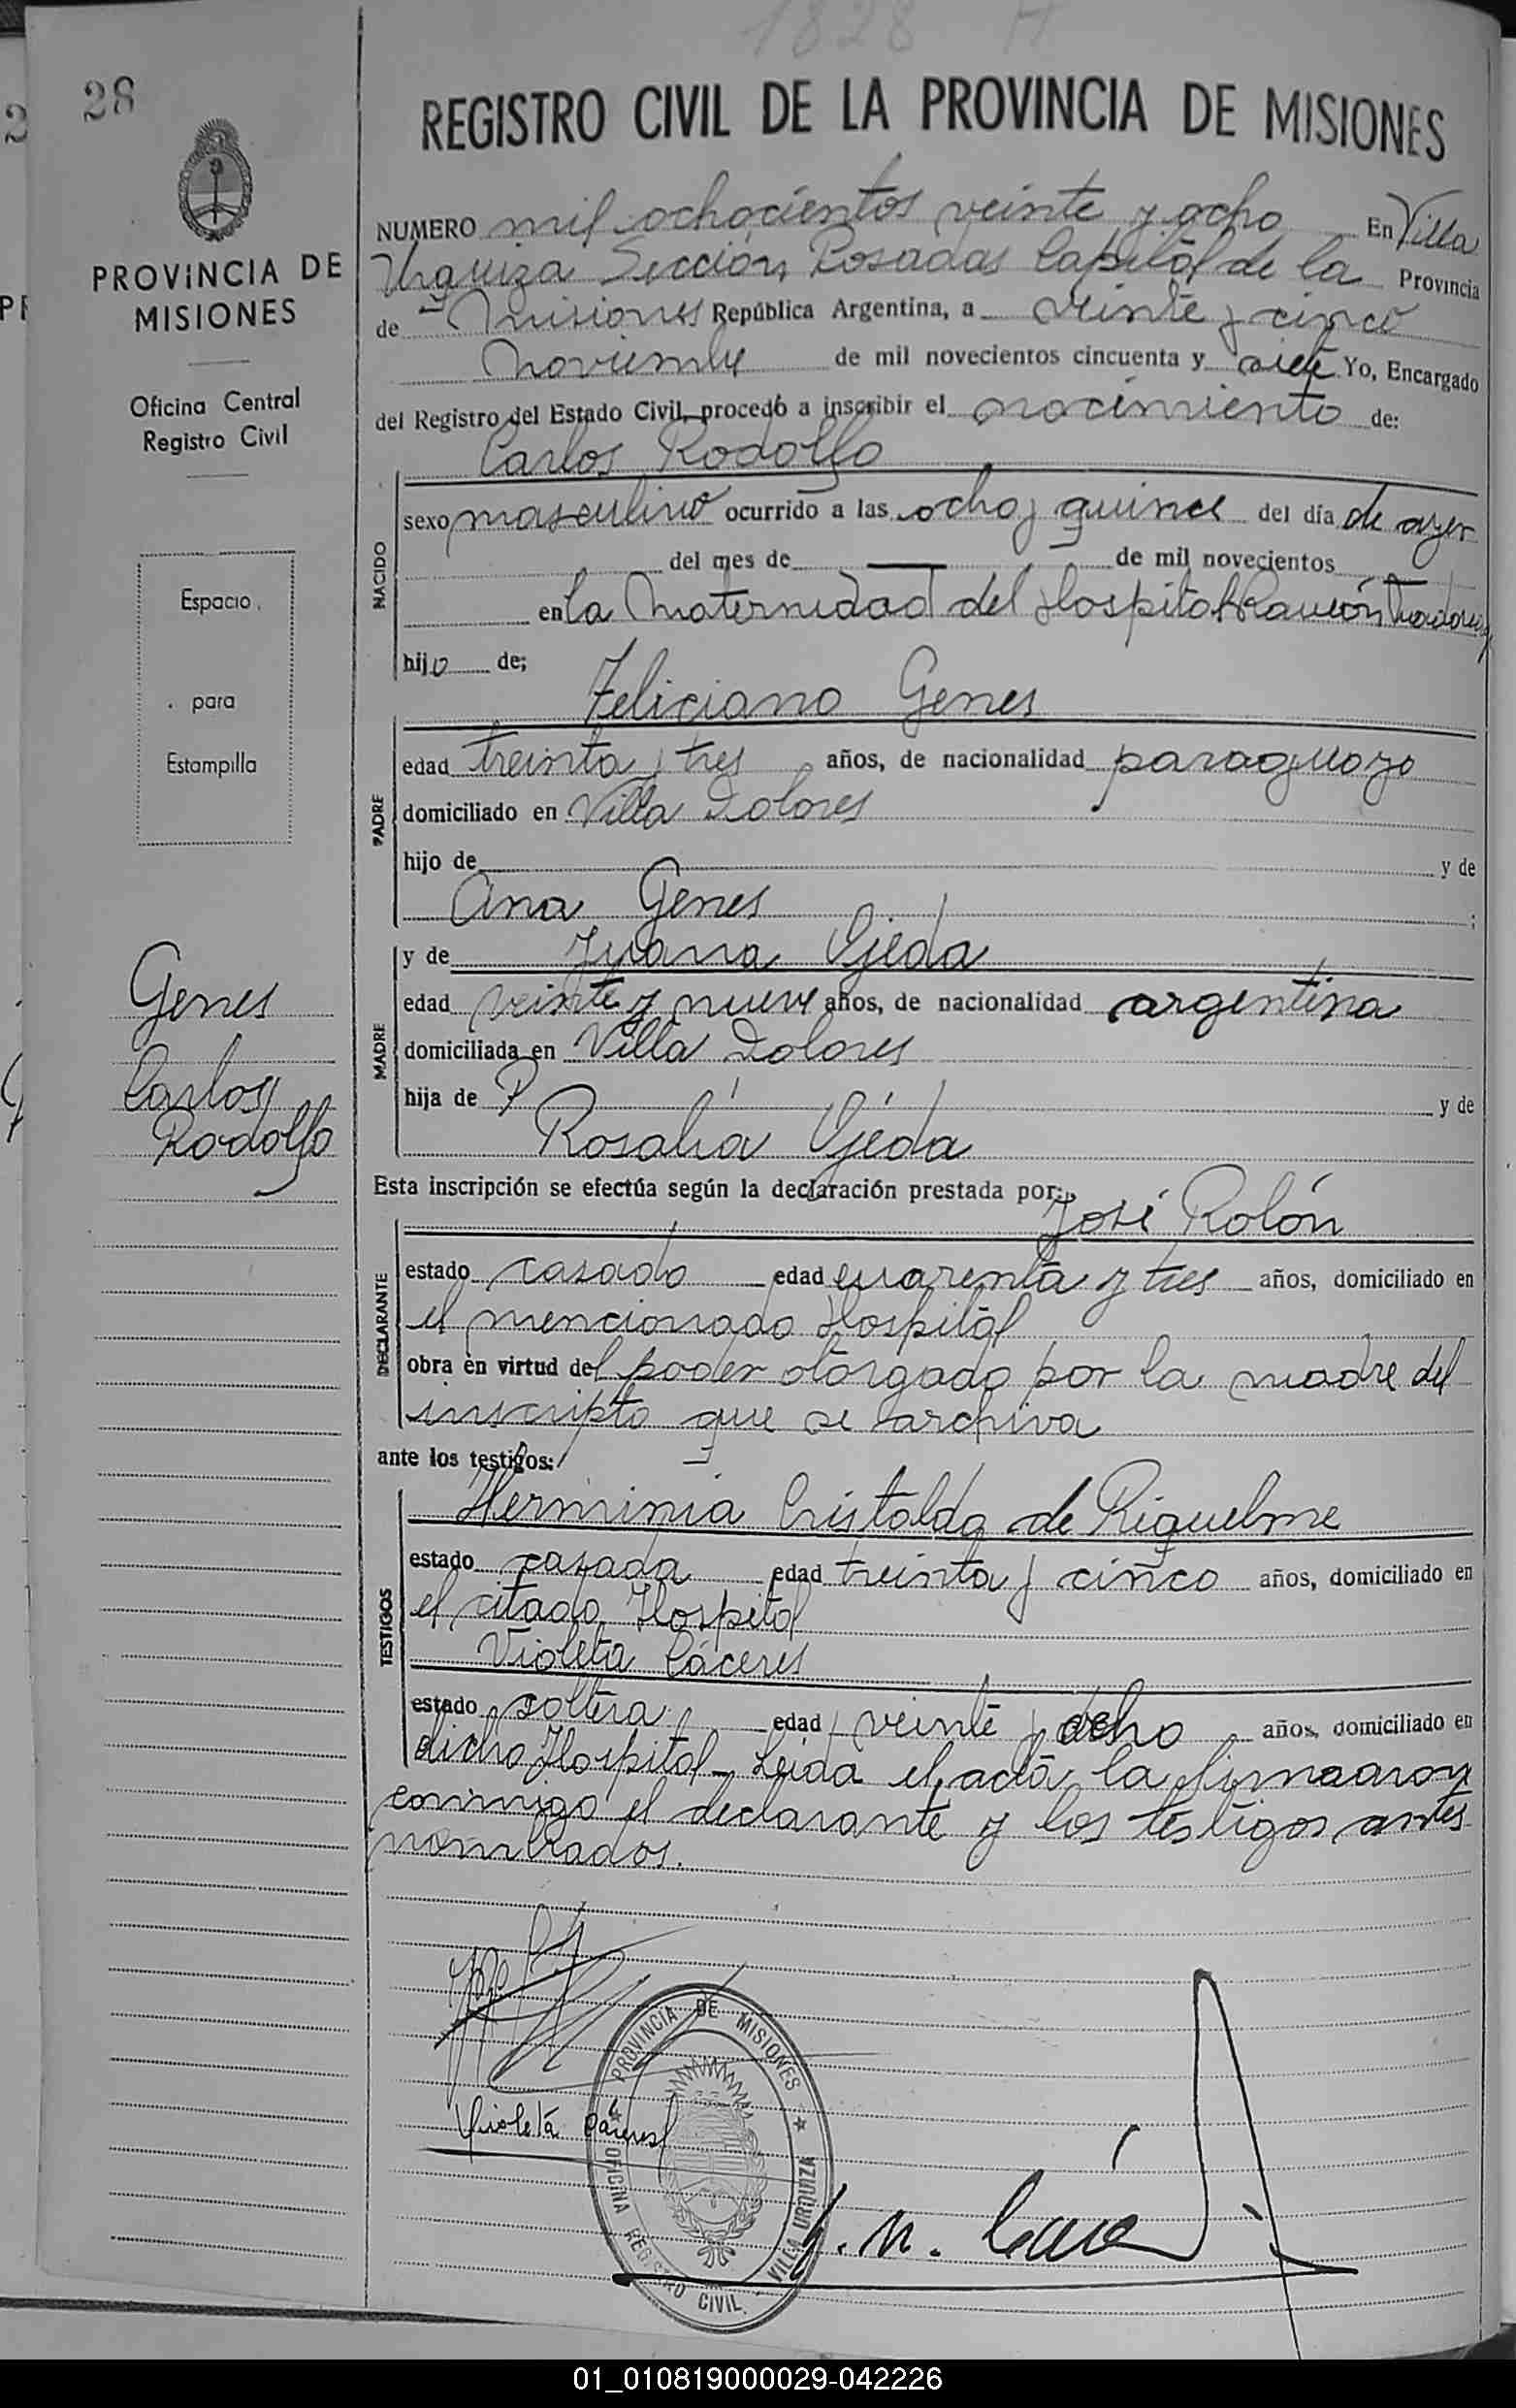 1828 A
28
REGISTRO CIVIL DE LA PROVINCIA DE MISIONES
PROVINCIA DE
MISIONES
Oficina Central
Registro Civil
Espacio
para
Estampilla
Genes
Carlos
Rodolfo
NUMERO mil ochocientos veinte y ocho En Villa
Urquiza Sección Posadas Capital de la Provincia
de Misiones República Argentina, a veinte y cinco
Noviembre de mil novecientos cincuenta y siete Yo, Encargado
del Registro del Estado Civil, procedo a inscribir el nacimiento de:
Carlos Rodolfo
NACIDO
sexo masculino ocurrido a las ocho y quince del día de ayer
del mes de — de mil novecientos —
en la Maternidad del Hospital Ramón Madariaga
hijo de;
Feliciano Genes
PADRE
edad treinta y tres años, de nacionalidad paraguayo
domiciliado en Villa Dolores
hijo de y de
Ana Genes ;
MADRE
y de Juana Ojeda
edad veinte y nueve años, de nacionalidad argentina
domiciliada en Villa Dolores
hija de y de
Rosalía Ojeda
Esta inscripción se efectúa según la declaración prestada por:
José Rolón
DECLARANTE
estado casado edad cuarenta y tres años, domiciliado en
el mencionado Hospital
obra en virtud del poder otorgado por la madre del
inscripto que se archiva
ante los testigos:
TESTIGOS
Herminia Cristaldo de Riquelme
estado casada edad treinta y cinco años, domiciliado en
el citado Hospital
Violeta Cáceres
estado soltera edad veinte y ocho años, domiciliado en
dicho Hospital - Leida el acta la firmaron
conmigo el declarante y los testigos antes
nombrados.
PROVINCIA DE MISIONES
OFICINA REGISTRO CIVIL - VILLA URQUIZA
Violeta Cáceres
01_010819000029-042226